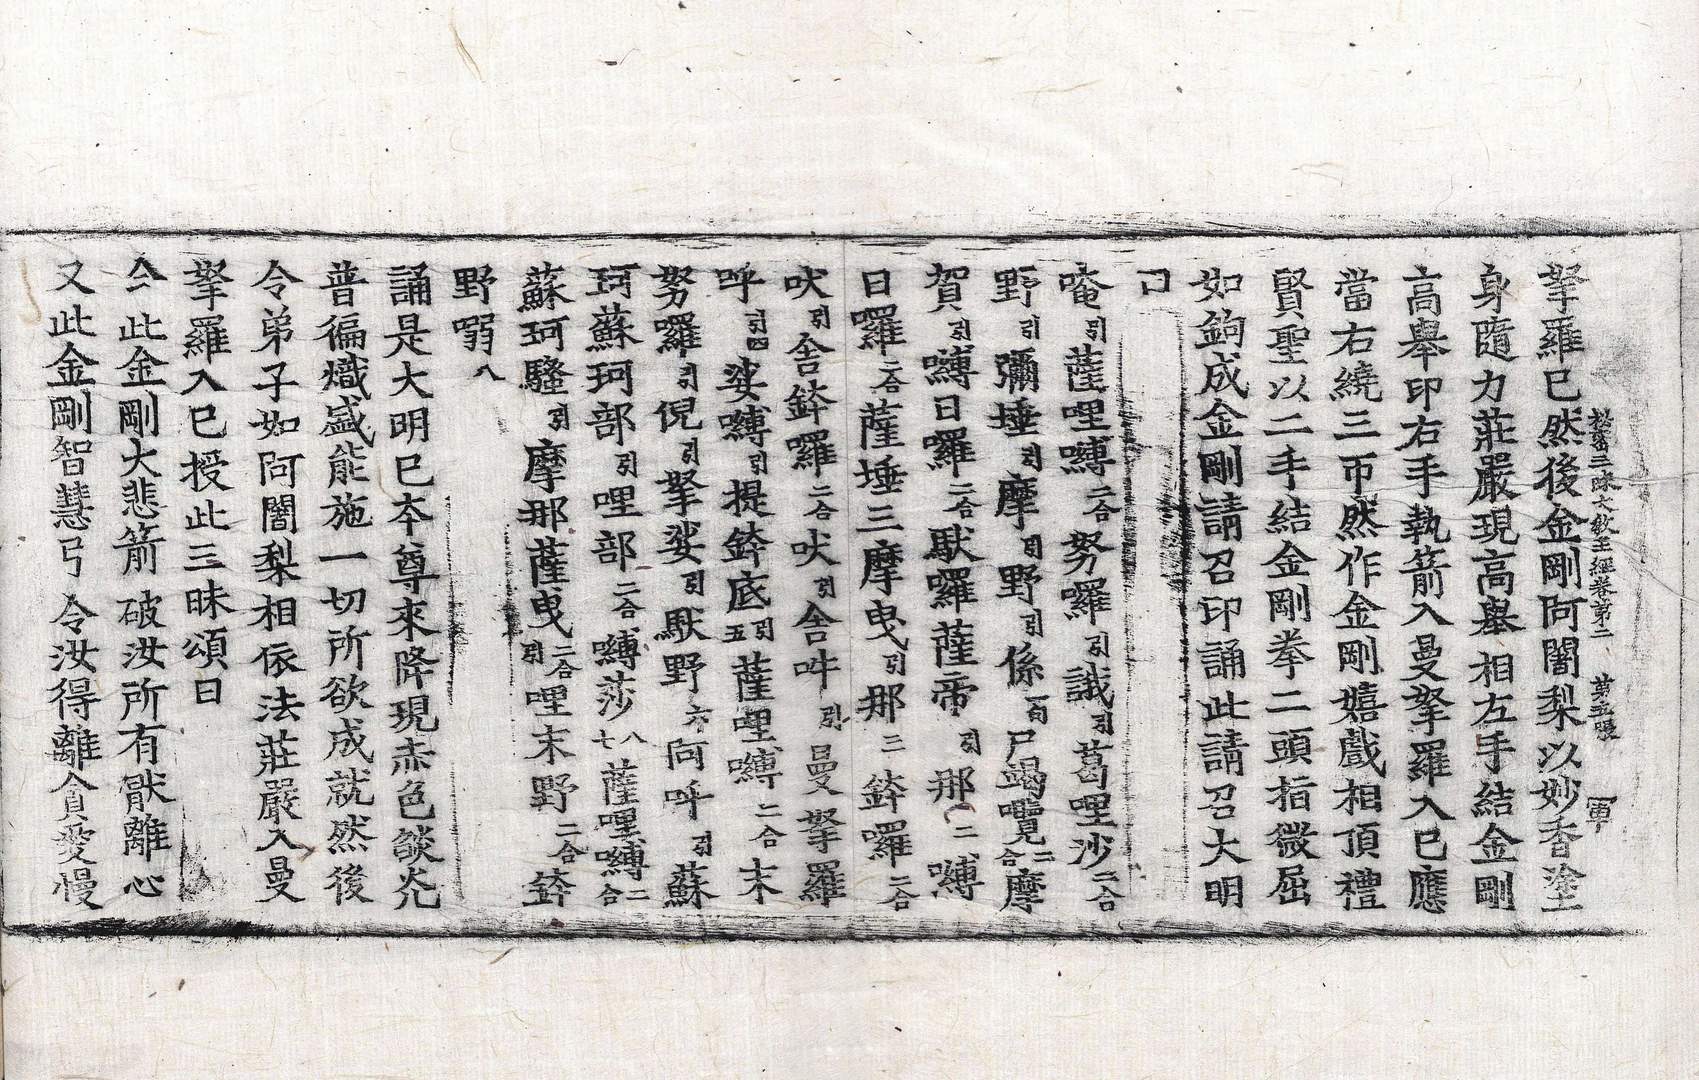 秘密三昧大教王經卷第二 第五張 軍
拏羅已然後金剛阿闍梨以妙香塗
身隨力莊嚴現高舉相左手結金剛
高舉印右手執箭入曼拏羅入已應
當右繞三帀然作金剛嬉戲相頂禮
賢聖以二手結金剛拳二頭指微屈
如鉤成金剛請召印誦此請召大明
曰
唵引薩哩嚩二合努囉引誐引葛哩沙二合
野引彌埵引摩引野引係一句尸竭囕二合摩
賀引嚩日囉二合馱囉薩帝引那二嚩
日囉二合薩埵三摩曳引那三鉢囉二合
吠引舍鉢囉二合吠引舍吽引曼拏羅
呼引四娑嚩引提鉢底引五薩哩嚩二合末
努囉引倪引拏娑引馱野六向呼引蘇
珂蘇珂部引哩部二合嚩莎八七薩哩嚩二合
蘇珂騷引摩那薩曳二合引哩末野二合鉢
野㗚八
誦是大明已本尊來降現赤色燄光
普徧熾盛能施一切所欲成就然後
令弟子如阿闍梨相依法莊嚴入曼
拏羅入已授此三昧頌曰
今此金剛大悲箭破汝所有猒離心
又此金剛智慧弓令汝得離貪愛慢